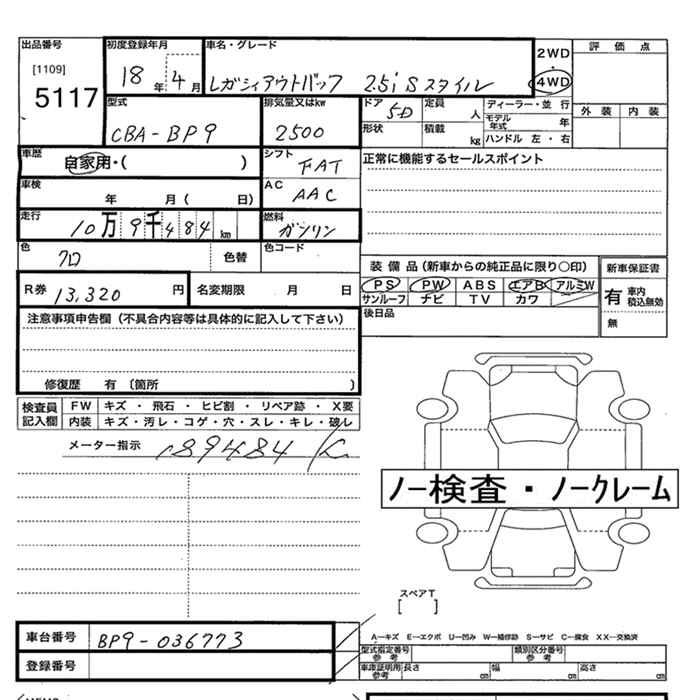 出品番号 初度登録年月 車名・グレード 2WD 評価点
[1109] 18年 4月 レガシィアウトバック 2.5i Sスタイル 4WD
5117 外装 内装
型式 排気量又はkw ドア 5D 定員 人 ディーラー・並行
CBA-BP9 2500 形状 積載 kg モデル年式 年
ハンドル 左・右
車歴 自家用・( ) シフト FAT 正常に機能するセールスポイント
車検 年 月( 日) AC AAC
走行 10万9千484km 燃料 ガソリン
色 クロ 色替 色コード
装備品(新車からの純正品に限り○印) 新車保証書
R券 13,320円 名変期限 月 日 PS PW ABS エアB アルミW 有 車内 積込無効
サンルーフ ナビ TV カワ 無
注意事項申告欄(不具合内容等は具体的に記入して下さい) 後日品
修復歴 有 〔箇所 〕
検査員記入欄 FW キズ・飛石・ヒビ割・リペア跡・X要
内装 キズ・汚レ・コゲ・穴・スレ・キレ・破レ
メーター指示 109484K
ノー検査・ノークレーム
スペアT
[ ]
車台番号 BP9-036773 A―キズ E―エクボ U―凹み W―補修跡 S―サビ C―腐食 XX―交換済
型式指定番号 参考 類別区分番号 参考
登録番号 車庫証明用 参考 長さ cm 幅 cm 高さ cm